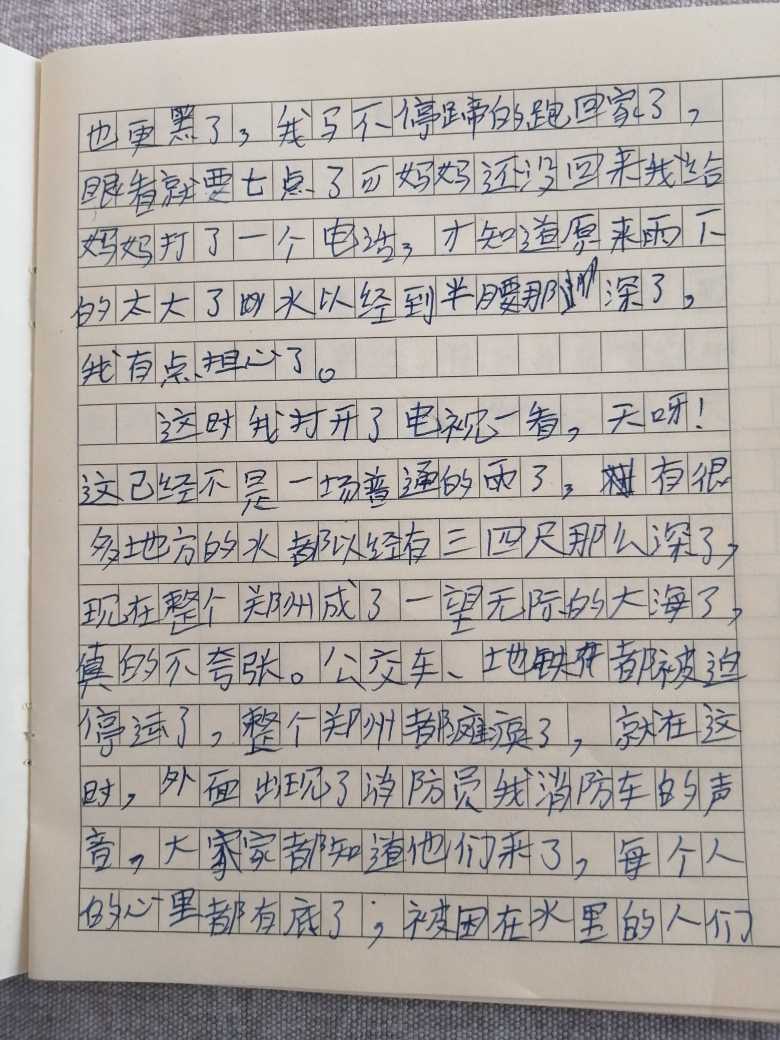 也更黑了，我马不停蹄的跑回家了，
眼看就要七点了可妈妈还没回来我给
妈妈打了一个电话，才知道原来雨下
的太大了水以经到半腰那深了，
我有点担心了。
这时我打开了电视一看，天呀！
这已经不是一场普通的雨了，有很
多地方的水都以经有三四尺那么深了，
现在整个郑州成了一望无际的大海了，
真的不夸张。公交车、地铁都被迫
停运了，整个郑州都瘫痪了，就在这
时，外面出现了消防员我消防车的声
音，大家家都知道他们来了，每个人
的心里都有底了；被困在水里的人们